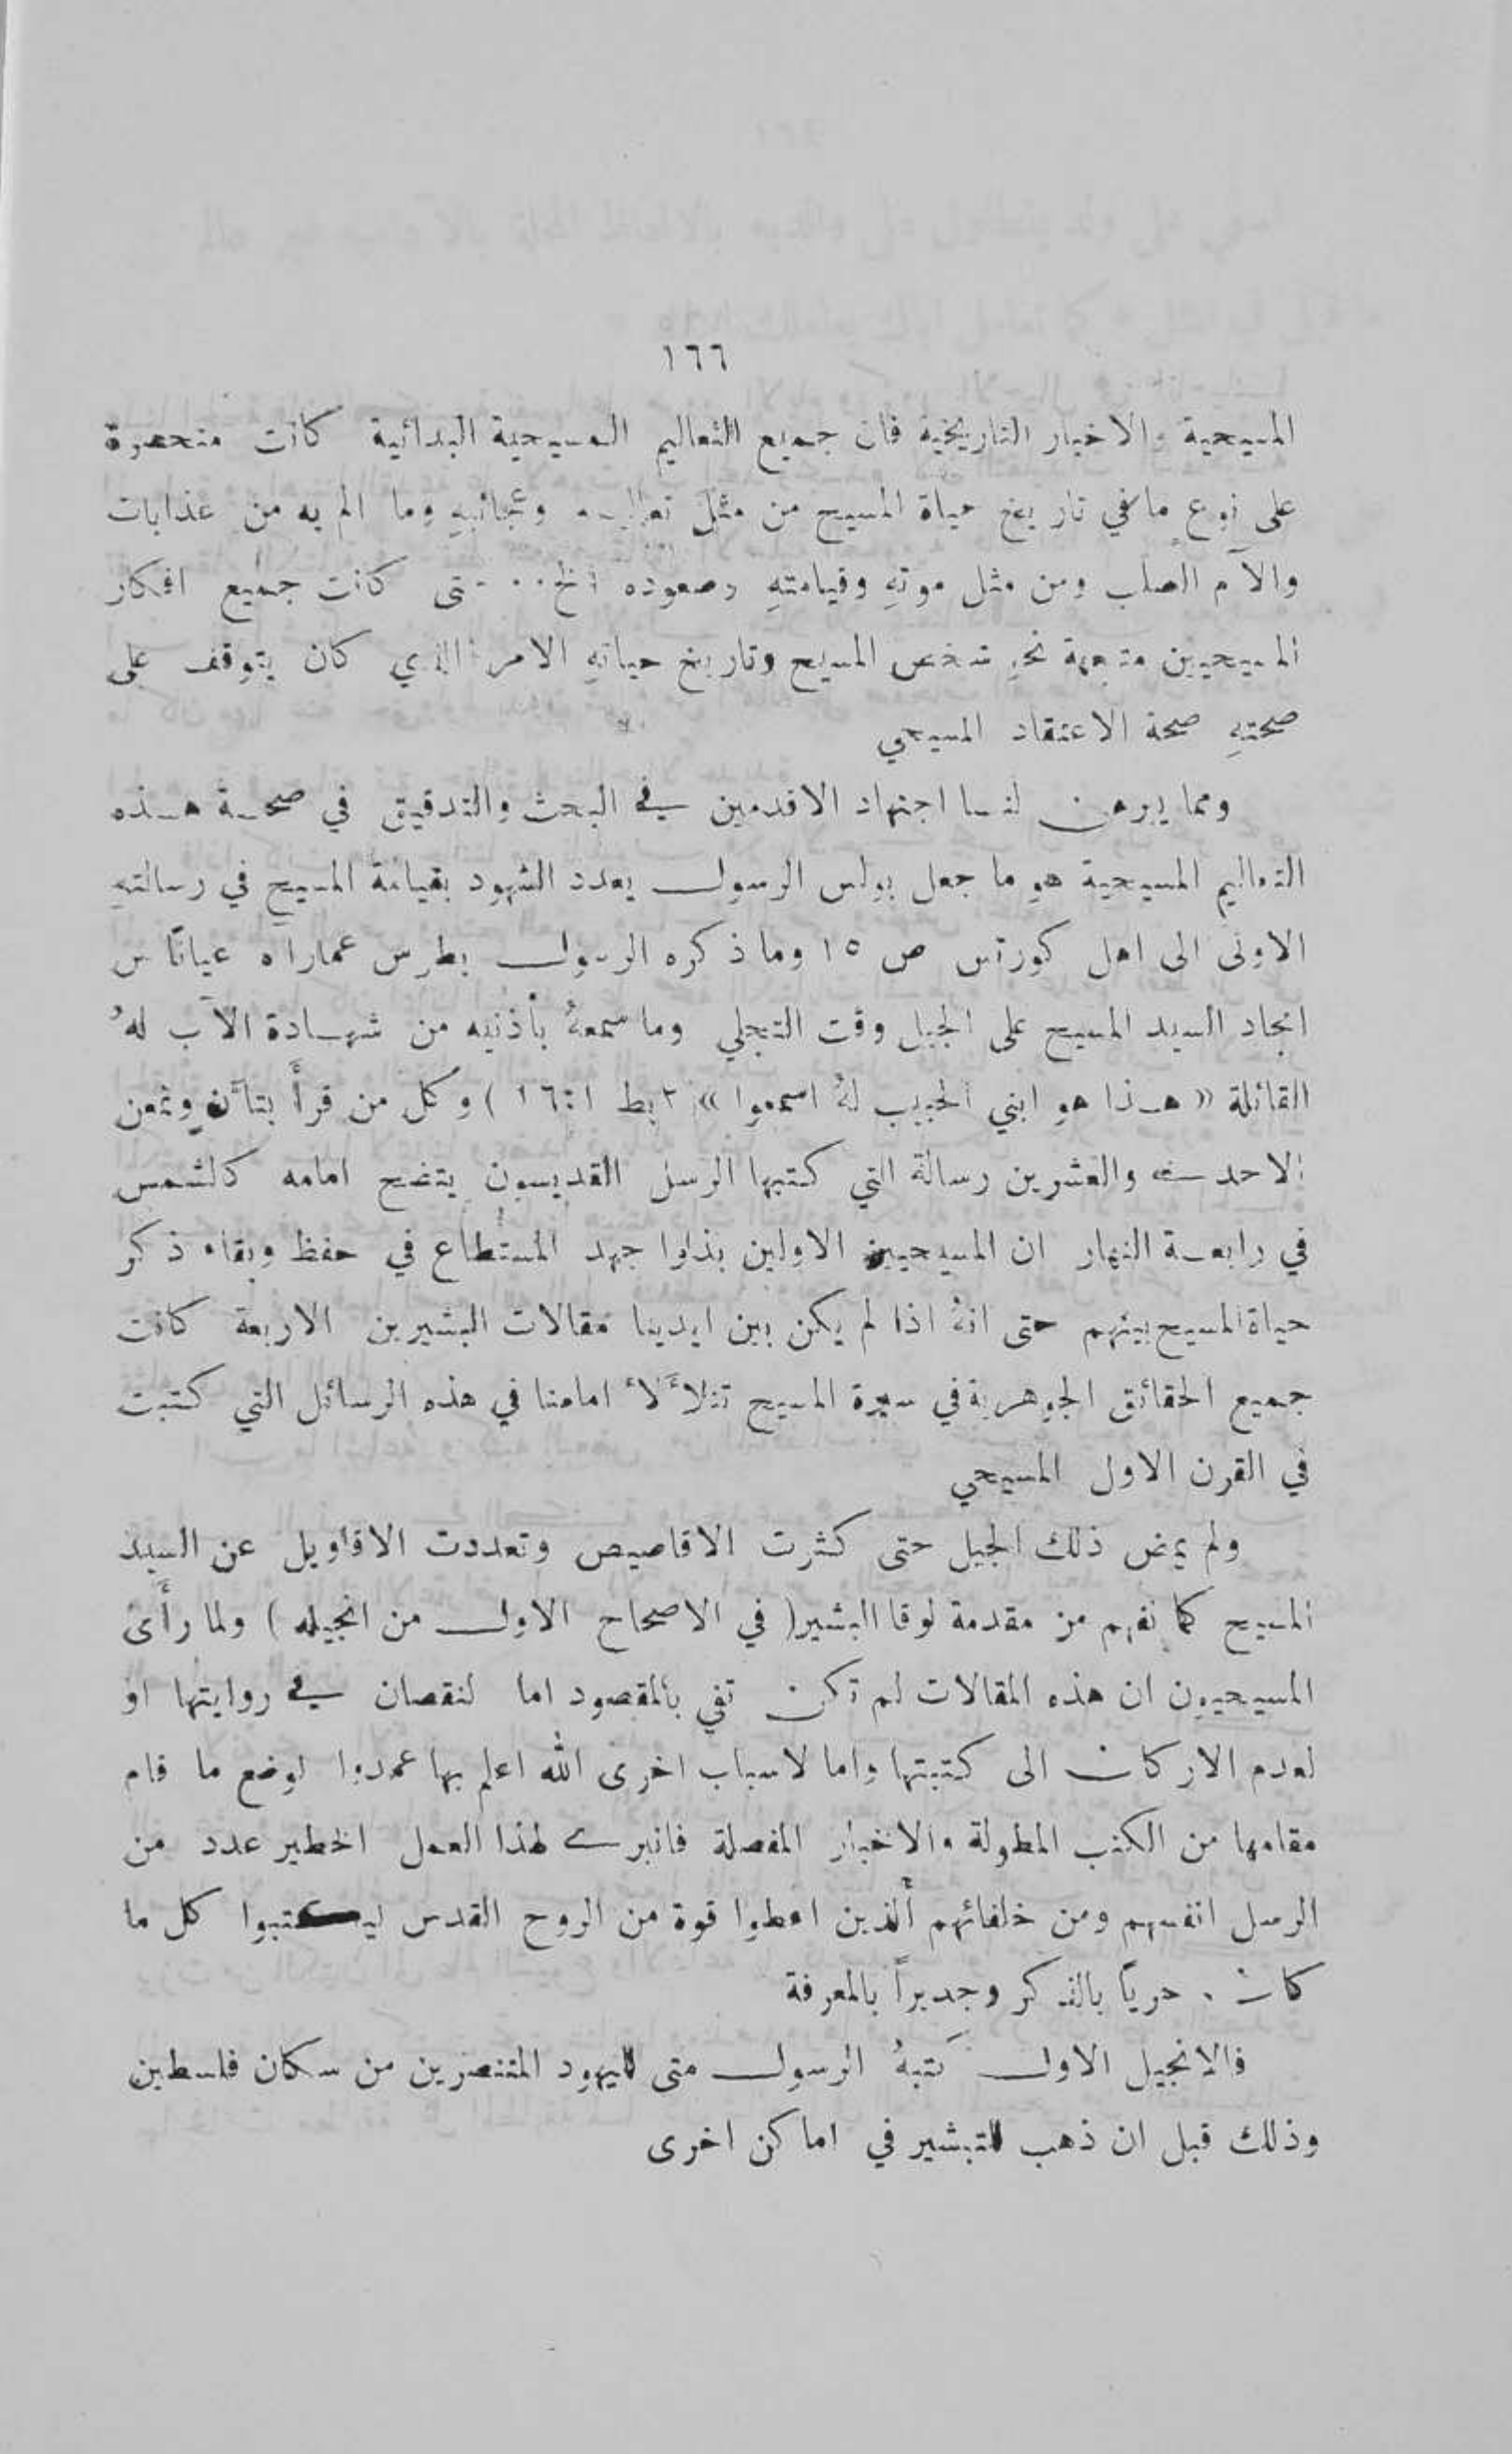 ١٦٦
المسيحية والاخبار التاريخية فان جميع التعاليم المسيحية البدائية كانت منحصرة
على نوع ما في تاريخ حياة المسيح من مثل تعاليمه وعجائبهِ وما الم به من عذابات
والآم الصلب ومن مثل موتهِ وقيامتهِ وصعوده الخ.. حتى كانت جميع افكار
المسيحيين متجهة نحو شخص المسيح وتاريخ حياتهِ الامر الذي كان يتوقف على
صحتهِ صحة الاعتقاد المسيحي
ومما يبرهن لنا اجتهاد الاقدمين في البحث والتدقيق في صحة هذه
التعاليم المسيحية هو ما جعل بولس الرسول يعدد الشهود بقيامة المسيح في رسالتهِ
الاولى الى اهل كورنثس ص ١٥ وما ذكره الرسول بطرس عما رآه عيانًا من
انجاد السيد المسيح على الجبل وقت التجلي وما سمعهُ بأذنيه من شهادة الآب لهُ
القائلة « هذا هو ابني الحبيب لهُ اسمعوا » ٢ بط ١٦:١ ) وكل من قرأ بتأنٍ وتمعن
الاحدى والعشرين رسالة التي كتبها الرسل القديسون يتضح امامه كالشمس
في رابعة النهار ان المسيحيين الاولين بذلوا جهد المستطاع في حفظ وبقاء ذكر
حياة المسيح بينهم حتى انهُ اذا لم يكن بين ايدينا مقالات البشيرين الاربعة كانت
جميع الحقائق الجوهرية في سيرة المسيح تتلأَلأ امامنا في هذه الرسائل التي كتبت
في القرن الاول المسيحي
ولم يمض ذلك الجيل حتى كثرت الاقاصيص وتعددت الاقاويل عن السيد
المسيح كما نفهم من مقدمة لوقا البشير ( في الاصحاح الاول من انجيله ) ولما رأَى
المسيحيون ان هذه المقالات لم تكن تفي بالمقصود اما لنقصان في روايتها او
لعدم الاركان الى كتبتها واما لاسباب اخرى الله اعلم بها عمدوا لوضع ما قام
مقامها من الكتب المطولة والاخبار المفصلة فانبرى لهذا العمل الخطير عدد من
الرسل انفسهم ومن خلفائهم ألذين اعطوا قوة من الروح القدس ليكتبوا كل ما
كان حريًا بالذكر وجديراً بالمعرفة
فالانجيل الاول كتبهُ الرسول متى لليهود المتنصرين من سكان فلسطين
وذلك قبل ان ذهب للتبشير في اماكن اخرى